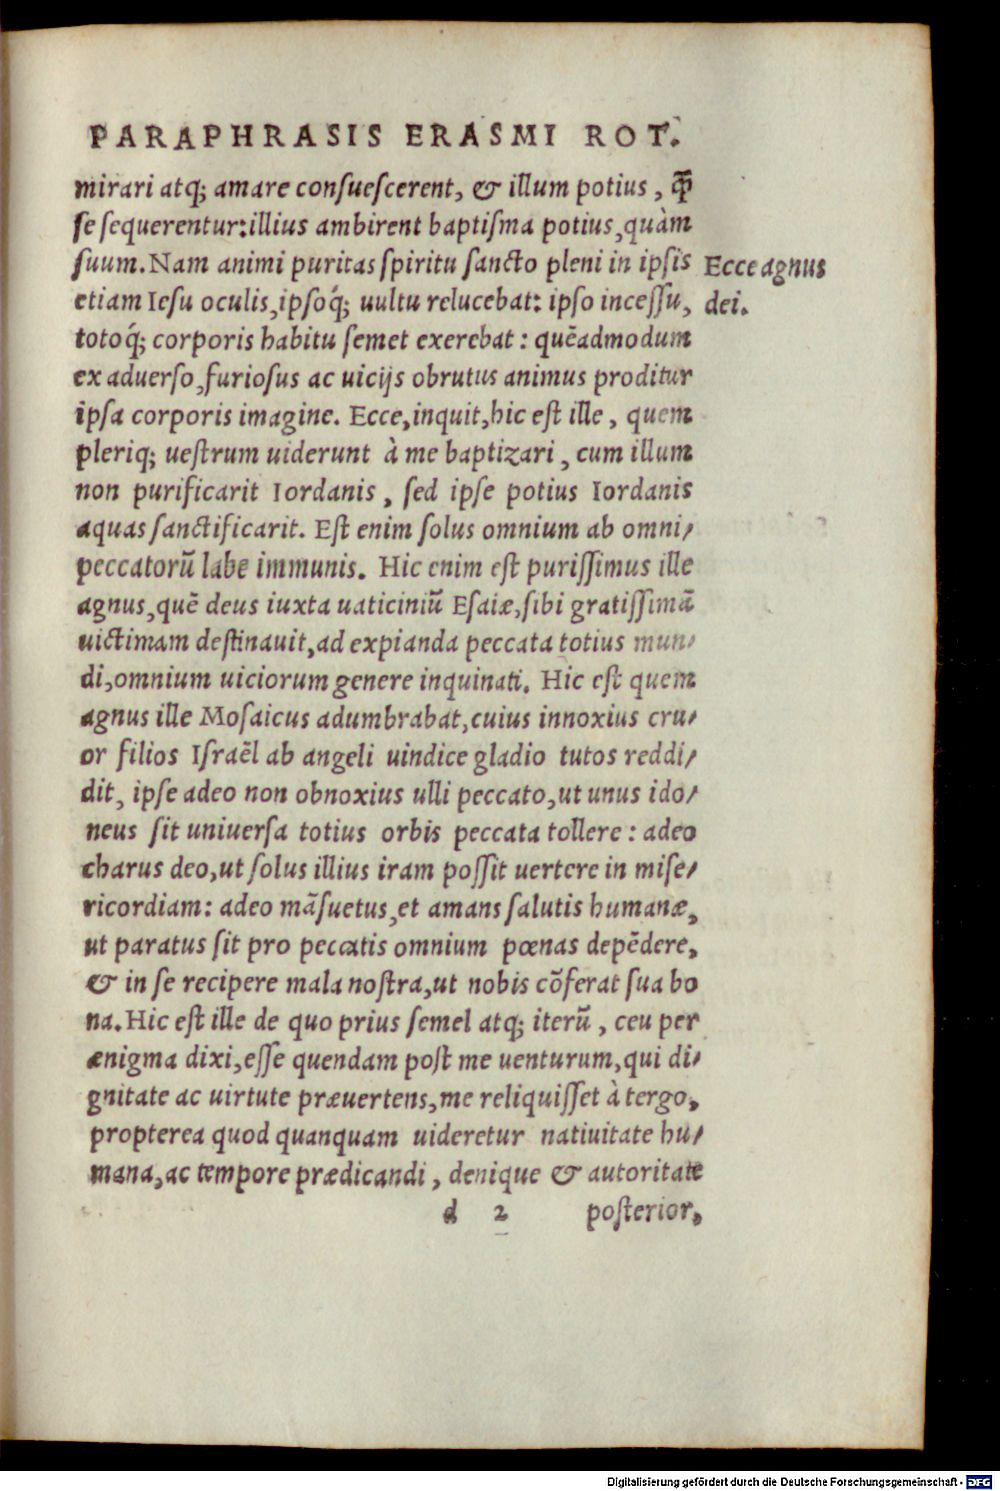 PARAPHRASIS ERASMI ROT.
mirari atq; amare consuescerent, & illum potius, q̃
se sequerentur: illius ambirent baptisma potius, quàm
suum. Nam animi puritas spiritu sancto pleni in ipsis
Ecce agnus
etiam Iesu oculis, ipsoq́; uultu relucebat: ipso incessu,
dei.
totoq́; corporis habitu semet exerebat: quẽadmodum
ex aduerso, furiosus ac uicijs obrutus animus proditur
ipsa corporis imagine. Ecce, inquit, hic est ille, quem
pleriq; uestrum uiderunt à me baptizari, cum illum
non purificarit Iordanis, sed ipse potius Iordanis
aquas sanctificarit. Est enim solus omnium ab omni/
peccatorũ labe immunis. Hic enim est purissimus ille
agnus, quẽ deus iuxta uaticiniũ Esaiæ, sibi gratissimã
uictimam destinauit, ad expianda peccata totius mun/
di, omnium uiciorum genere inquinati. Hic est quem
agnus ille Mosaicus adumbrabat, cuius innoxius cru/
or filios Israẽl ab angeli uindice gladio tutos reddi/
dit, ipse adeo non obnoxius ulli peccato, ut unus ido/
neus sit uniuersa totius orbis peccata tollere: adeo
charus deo, ut solus illius iram possit uertere in mise/
ricordiam: adeo mãsuetus, et amans salutis humanæ,
ut paratus sit pro peccatis omnium pœnas depẽdere,
& in se recipere mala nostra, ut nobis cõferat sua bo
na. Hic est ille de quo prius semel atq; iterũ, ceu per
ænigma dixi, esse quendam post me uenturum, qui di/
gnitate ac uirtute præuertens, me reliquisset à tergo,
propterea quod quanquam uideretur natiuitate hu/
mana, ac tempore prædicandi, denique & autoritate
d 2 posterior,
Digitalisierung gefördert durch die Deutsche Forschungsgemeinschaft - DFG